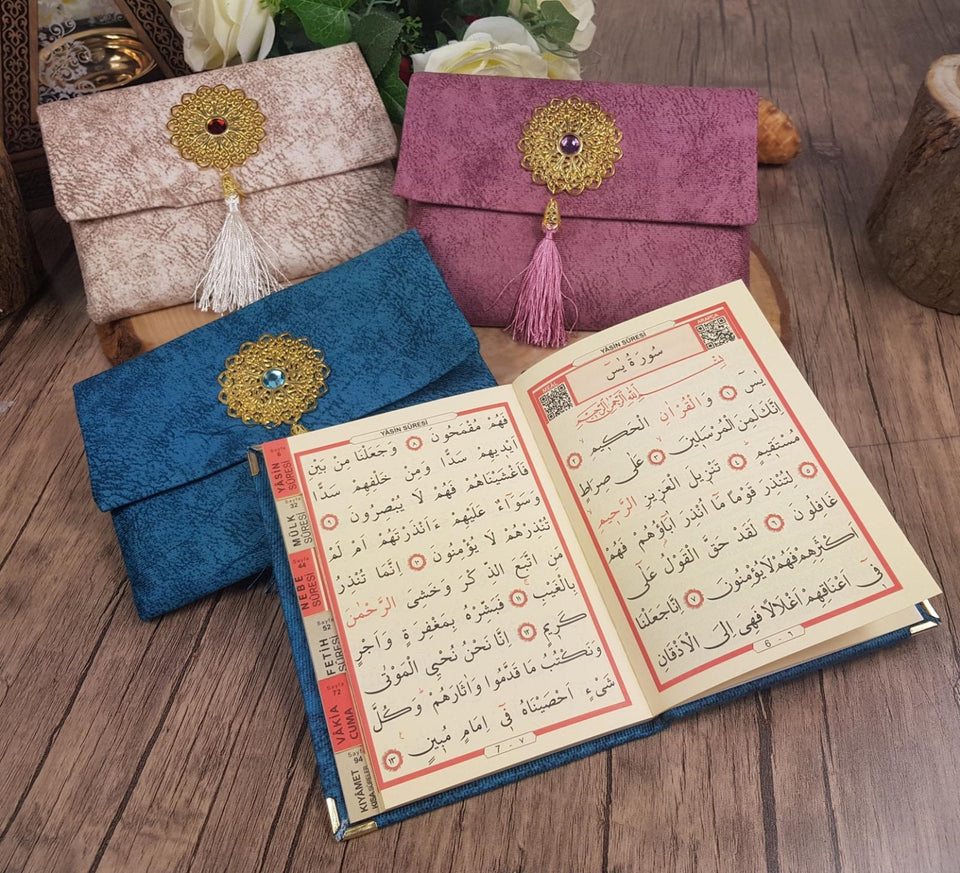 YÂSİN SÛRESİ
سُورَةُ يٰسٓ
بِسْمِ اللّٰهِ الرَّحْمٰنِ الرَّحِيمِ
يٰسٓ ١ وَالْقُرْاٰنِ الْحَكِيمِ ٢
اِنَّكَ لَمِنَ الْمُرْسَلِينَ ٣ عَلٰى صِرَاطٍ
مُسْتَقِيمٍ ٤ تَنْزِيلَ الْعَزِيزِ الرَّحِيمِ
٥ لِتُنْذِرَ قَوْمًا مَٓا اُنْذِرَ اٰبَٓاؤُهُمْ فَهُمْ
غَافِلُونَ ٦ لَقَدْ حَقَّ الْقَوْلُ عَلٰٓى
اَكْثَرِهِمْ فَهُمْ لَا يُؤْمِنُونَ ٧ اِنَّا جَعَلْنَا
فِٓى اَعْنَاقِهِمْ اَغْلَالًا فَهِىَ اِلَى الْاَذْقَانِ
6 - ٦
YÂSİN SÛRESİ
فَهُمْ مُقْمَحُونَ ٨ وَجَعَلْنَا مِنْ بَيْنِ
اَيْدِيهِمْ سَدًّا وَمِنْ خَلْفِهِمْ سَدًّا
فَاَغْشَيْنَاهُمْ فَهُمْ لَا يُبْصِرُونَ ٩
وَسَوَٓاءٌ عَلَيْهِمْ ءَاَنْذَرْتَهُمْ اَمْ لَمْ
تُنْذِرْهُمْ لَا يُؤْمِنُونَ ١٠ اِنَّمَا تُنْذِرُ
مَنِ اتَّبَعَ الذِّكْرَ وَخَشِىَ الرَّحْمٰنَ
بِالْغَيْبِ ١١ فَبَشِّرْهُ بِمَغْفِرَةٍ وَاَجْرٍ
كَرِيمٍ ١٢ اِنَّا نَحْنُ نُحْىِ الْمَوْتٰى
وَنَكْتُبُ مَا قَدَّمُوا وَاٰثَارَهُمْ وَكُلَّ
شَىْءٍ اَحْصَيْنَاهُ فِٓى اِمَامٍ مُبِينٍ ١٣
7 - ٧
Sayfa
6
YÂSİN
SÛRESİ
Sayfa
32
MÜLK
SÛRESİ
Sayfa
NEBE
SÛRESİ
Sayfa
52
FETİH
SÛRESİ
Sayfa
72
VÂKIA
CUMA
Sayfa
94
KIYÂMET
KISA SÛRELER